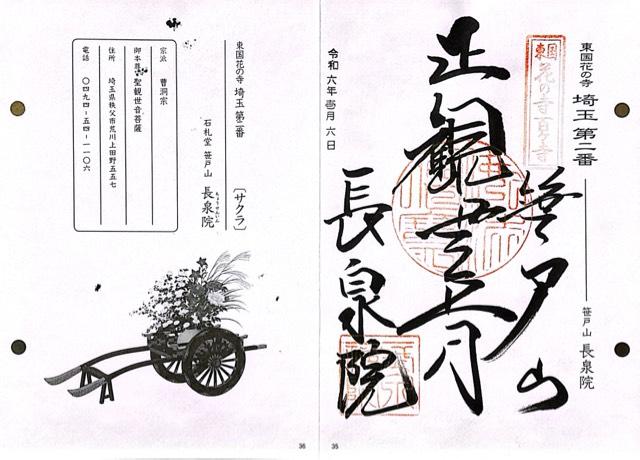 東国花の寺 埼玉 第二番
笹戸山 長泉院
東国
花の寺百ヶ寺
笹戸山
正観世音
長泉院
令和 六年 壱月 六日
35
東国花の寺 埼玉 第二番
〔サクラ〕
石札堂 笹戸山 長泉院
ちょうせんいん
宗派 曹洞宗
御本尊 聖観世音菩薩
住所 埼玉県秩父市荒川上田野五五七
電話 〇四九四-五四-一一〇六
36